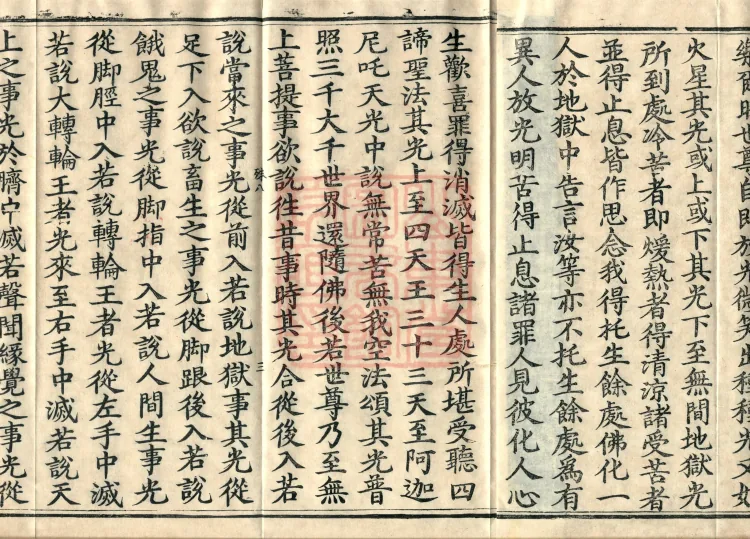 火星其光或上或下其光下至無間地獄光
所到處冷苦者即煖熱者得清涼諸受苦者
並得止息皆作思念我得托生餘處佛化一
人於地獄中告言汝等亦不托生餘處為有
異人放光明苦得止息諸罪人見彼化人心
生歡喜罪得消滅皆得生人處所堪受聽四
諦聖法其光上至四天王三十三天至阿迦
尼吒天光中說無常苦無我空法頌其光普
照三千大千世界還隨佛後若世尊乃至無
上菩提事欲說往昔事時其光合從後入若
三
說當來之事光從前入若說地獄事其光從
足下入欲說畜生之事光從脚跟後入若說
餓鬼之事光從脚指中入若說人間生事光
從脚脛中入若說轉輪王者光從左手中滅
若說大轉輪王者光來至右手中滅若說天
上之事光於臍中滅若聲聞緣覺之事光從